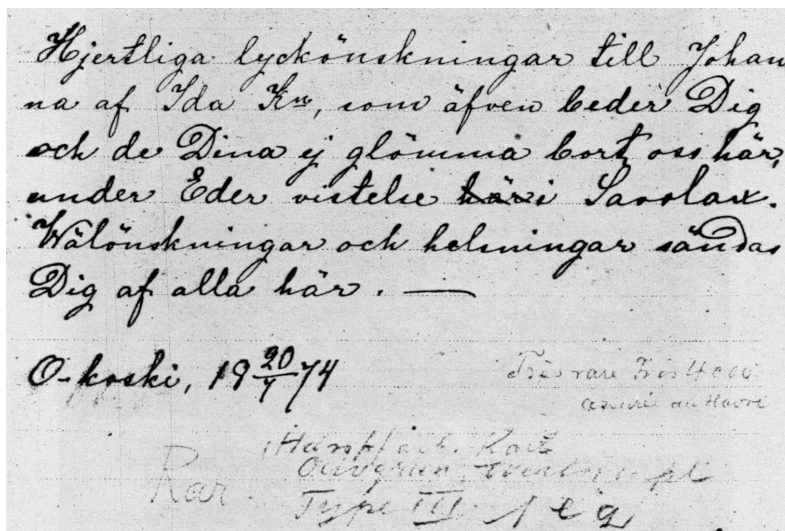 Hjertliga lyckönskningar till Johan
na af Ida Kn, som äfven beder Dig
och de Dina ej glömma bort oss här,
under Eder vistelse här i Savolax.
Wälönskningar och helsningar sändas
Dig af alla här. —
O-koski, 19 20/7 74
Très rare Très
au Havre
Rar
Type III